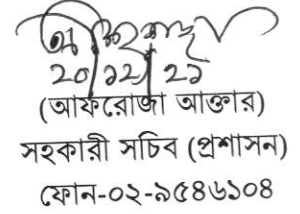 ২০/১২/২১
(আফরোজা আক্তার)
সহকারী সচিব (প্রশাসন)
ফোন-০২-৯৫৪৬১০৪